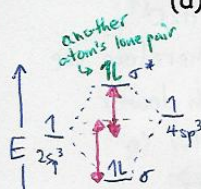 (d)
another
atom's lone pair
↳ 1L σ*
1
E 2sp³
1
4sp³
1L σ